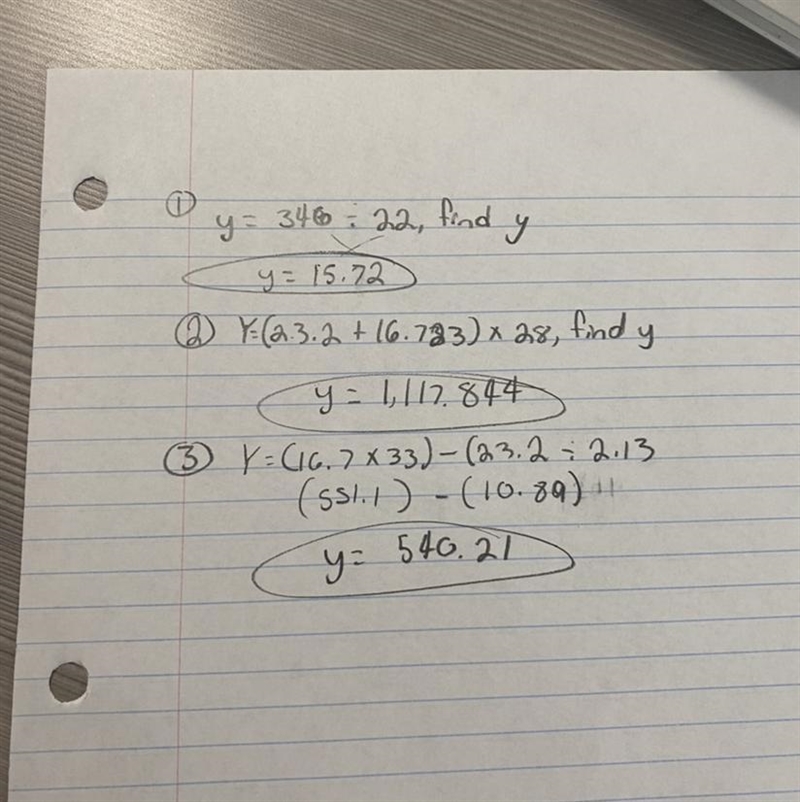 ① y = 346 ÷ 22, find y
y = 15.72
② Y=(23.2 + 16.723) x 28, find y
y = 1,117.844
③ Y=(16.7 x 33) - (23.2 ÷ 2.13
(551.1) - (10.89)
y = 540.21